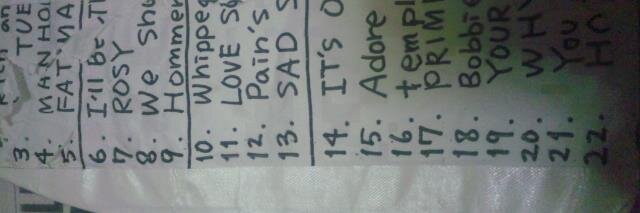 3. TUE
4. MANHO
5. FAT MA
6. I'll be
7. ROSY
8. We sh
9. Hommer
10. Whipped
11. LOVE S
12. Pain's
13. SAD S
14. IT's O
15. Adore
16. templ
17. PRIM
18. Bobbie
19. YOUR
20. WHY
21. You
22.